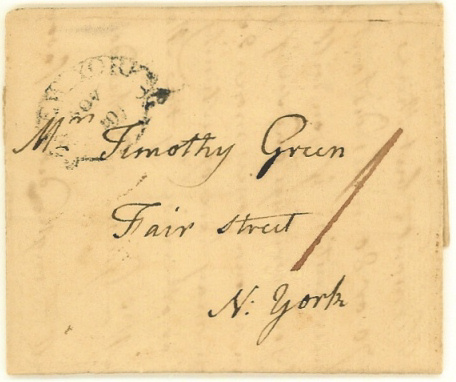 N. YORK
NOV
Mr. Timothy Green
Fair street
N: York